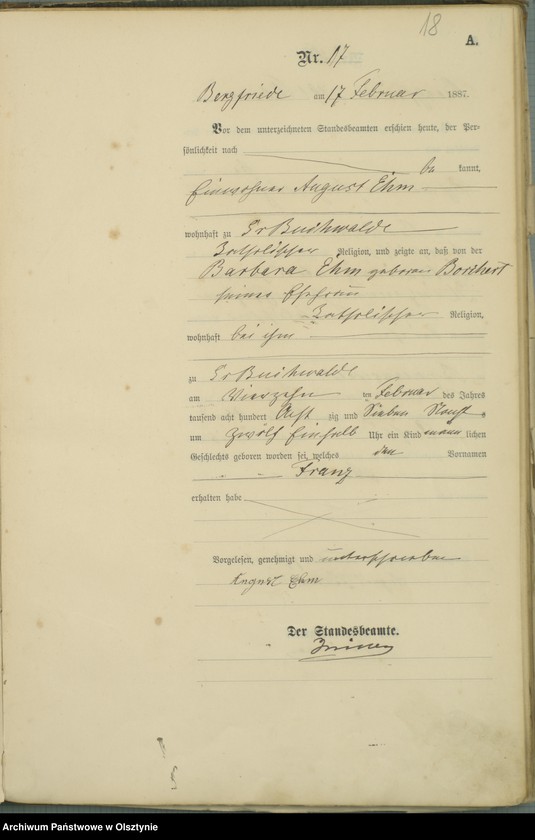 18
A.
Nr. 17
Bergfriede am 17 Februar 1887.
Vor dem unterzeichneten Standesbeamten erschien heute, der Per-
sönlichkeit nach
be kannt,
Einwohner August Ehm
wohnhaft zu Gr Buchwalde
Katholischer Religion, und zeigte an, daß von der
Barbara Ehm geborene Borchert
seiner Ehefrau
Katholischer Religion,
wohnhaft bei ihm
zu Gr Buchwalde
am Vierzehn ten Februar des Jahres
tausend acht hundert Acht zig und Sieben
um Zwölf Einhalb Uhr ein Kind männlichen
Geschlechts geboren worden sei, welches den Vornamen
Franz
erhalten habe
Vorgelesen, genehmigt und unterschrieben
August Ehm
Der Standesbeamte.
Archiwum Państwowe w Olsztynie